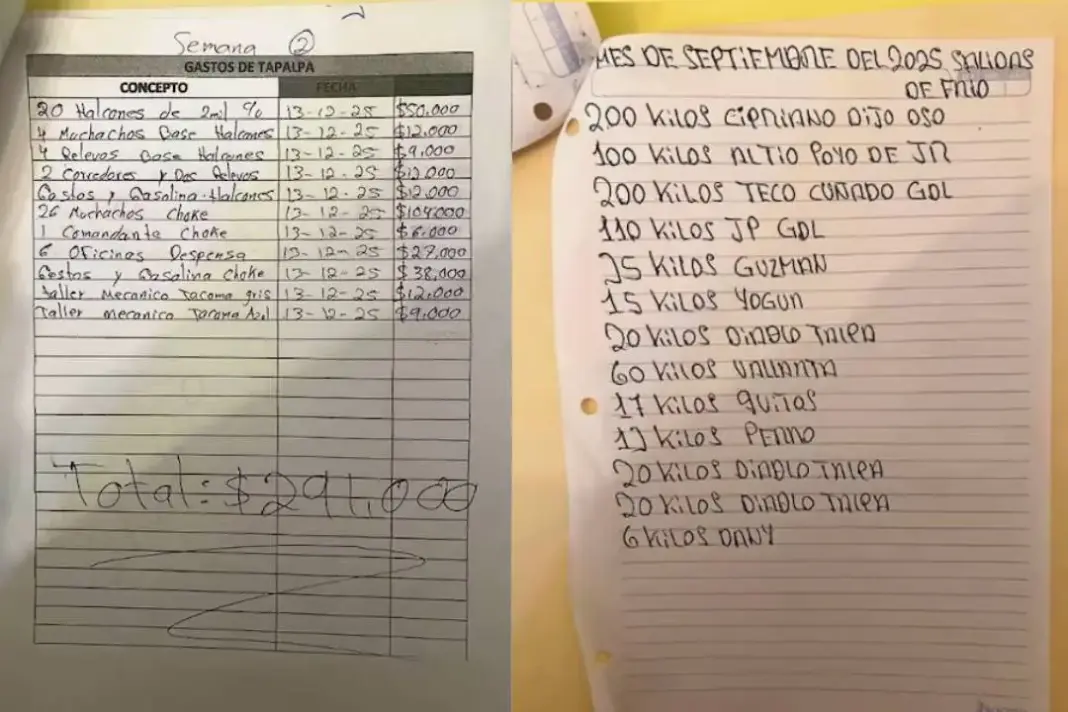 Semana 2
GASTOS DE TAPALPA
CONCEPTO FECHA
20 Halcones de 2mil % 13-12-25 $50.000
4 Muchachos Base Halcones 13-12-25 $12.000
4 Relevos Base Halcones 13-12-25 $9.000
2 Corredores y Dos Relevos 13-12-25 $12.000
Gastos y Gasolina Halcones 13-12-25 $12.000
26 Muchachos Choke 13-12-25 $104.000
1 Comandante Choke 13-12-25 $6.000
6 Oficinas Despensa 13-12-25 $27.000
Gastos y Gasolina Choke 13-12-25 $38.000
Taller Mecanico Tacoma gris 13-12-25 $12.000
Taller mecanico Tacoma Azul 13-12-25 $9.000
Total: $291,000
MES DE SEPTIEMBRE DEL 2025 SALIDAS
DE FRIO
200 KILOS CIPRIANO DIJO OSO
100 KILOS ALTIO POYO DE JR
200 KILOS TECO CUÑADO GDL
110 KILOS JP GDL
35 KILOS GUZMAN
15 KILOS YOGUR
20 KILOS DIABLO TALPA
60 KILOS VALLARTA
17 KILOS QUITAS
13 KILOS PERRO
20 KILOS DIABLO TALPA
20 KILOS DIABLO TALPA
6 KILOS DANY